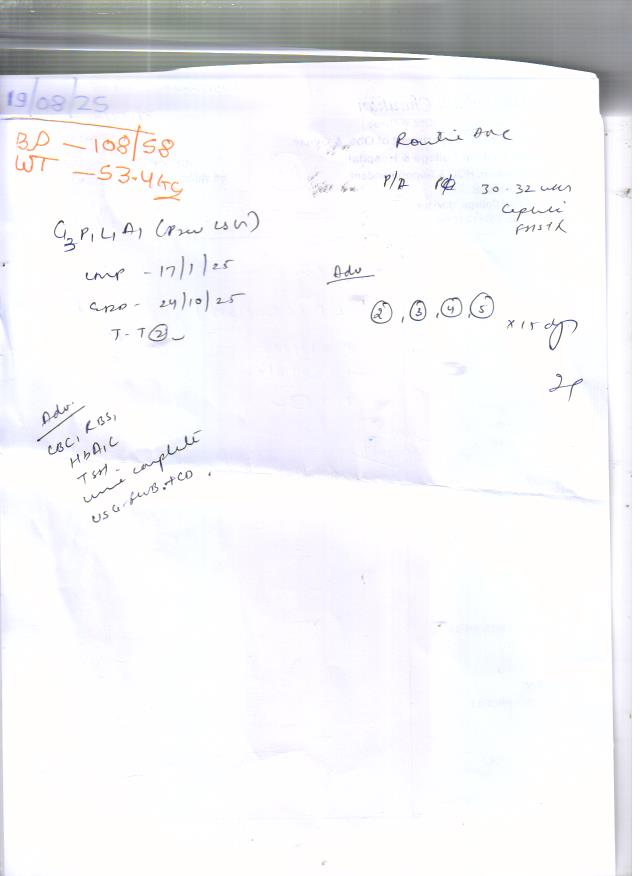 19/08/25
BP - 108/58
WT - 53.4 KG
Routine ANC
P/A 30-32 wks
Cephalic
FHS+
G3P1L1A1 (Prev LSCS)
LMP - 17/1/25
EDD - 24/10/25
T-T ②
Adv
②, ③, ④, ⑤ x 15 days
Adv.
CBC, RBS,
HbA1C
TSH.
urine complete
USG. FWB. + CD.